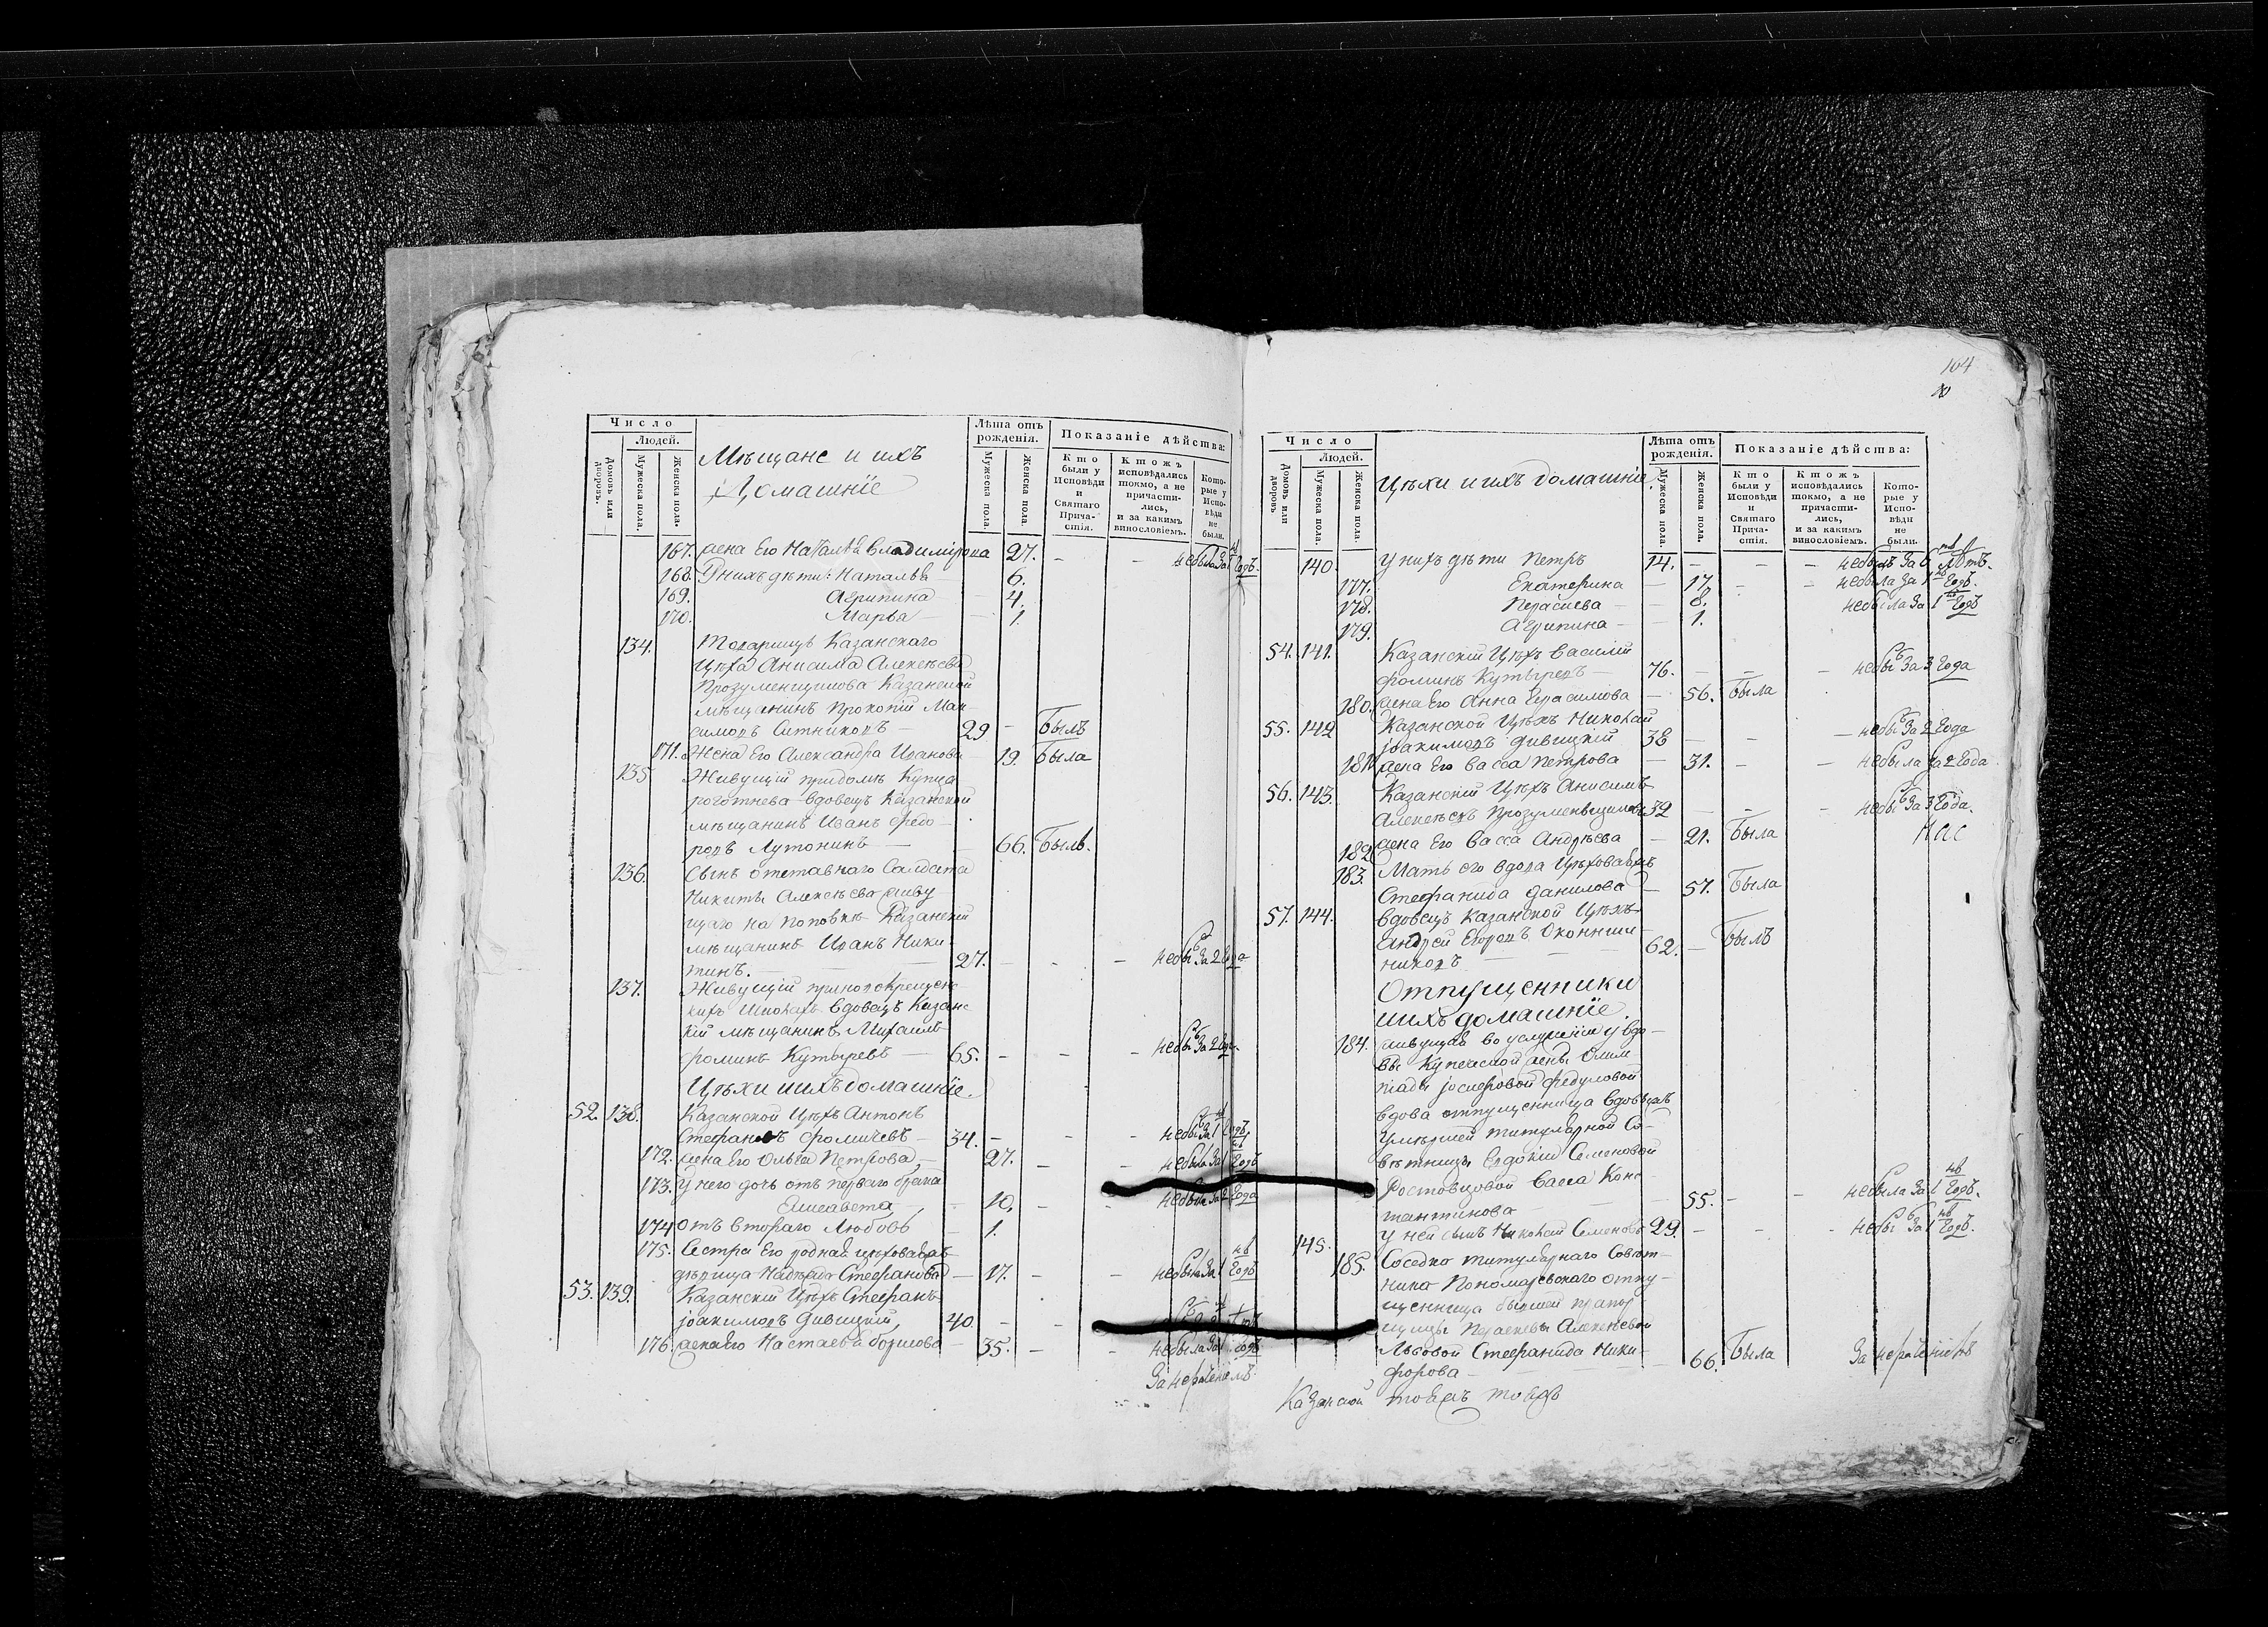 Число
Людей.
Домовъ или дворовъ.
Мужеска пола.
Женска пола.
Мѣщане и ихъ
Домашніе
Лѣта отъ рожденія.
Мужеска пола.
Женска пола.
Показаніе дѣйства:
Кто были у Исповѣди и Святаго Причастія.
Ктожъ исповѣдались токмо, а не причастились, и за какимъ винословіемъ.
Которые у Исповѣди не были.
167. жена Его Наталья Владимірова 27. - - небыла за 1 годъ.
168. У нихъ дѣти: Наталья - 6.
169. Агрипина - 4.
170. Марья - 1.
134. Товарищъ Казанскаго
Цѣха Анисима Алексѣева
Прозуменщикова Казанской
мѣщанинъ Прокопій Мак-
симовъ Ситниковъ - 29 - Былъ
171. Жена Его Александра Иванова 19. Была
135 Живущій придомѣ Купца
вдовецъ Казанской
мѣщанинъ Иванъ Федо-
ровъ Лутонинъ - 66. Былъ.
136. Сынъ отставнаго Салдата
Никиты Алексѣева живу-
щаго на Поповкѣ Казанскій
мѣщанинъ Иванъ Ники-
тинъ. - 27. - - - небы за 2 года
137. Живущій
вдовецъ Казанс-
кій мѣщанинъ Михаилъ
Фоминъ Кутыревъ - 65. - - - небы за 2 года.
Цѣхи иихъ домашніе.
52. 138. Казанской Цѣхъ Антонъ
Стефановъ Фомичевъ - 34. - - - небы за 1 годъ
172. жена Его Ольга Петрова, - 27. - - небыла за 1 годъ
173. У него дочь отъ перваго брака
Елисавета - 10. - - небыла за 2 года
174 Отъ втораго Любовь - 1.
175. Сестра Его родная цѣховая
дѣвица Надежда Стефанова - 17. - - небыла за 1 годъ
53. 139. Казанскій Цѣхъ Стефанъ
Іоакимовъ Дивицкій, 40 - -
176. жена Его Настасья Борисова - 35. - - небыла за 1 годъ
За нераченіемъ.
104
Число
Людей.
Домовъ или дворовъ
Мужеска пола.
Женска пола.
Цѣхи иихъ домашніе.
Лѣта отъ рожденія.
Мужеска пола.
Женска пола.
Показаніе дѣйства:
Кто были у Исповѣди и Святаго Причастія.
Ктожъ исповѣдались токмо, а не причастились, и за какимъ винословіемъ.
Которые у Исповѣди не были.
140. У нихъ дѣти Петръ 14. - - - небылъ за 6 лѣтъ.
177. Екатерина - 17. - - небыла за 1 годъ.
178. - 8. небыла за 1 годъ
179. Агрипина - 1.
54. 141. Казанскій Цѣхъ Василій
Фоминъ Кутыревъ - 76. - - - небы за 3 года
180. жена Его Анна Герасимова - 56. Была
55. 142 Казанской Цѣхъ Николай
Іоакимовъ Дивицкій 38 - - - небы за 2 года
181 жена Его Васса Петрова - 31. - - небыла за 2 года.
56. 143. Казанскій Цѣхъ Анисимъ
Алексѣевъ Прозуменщиковъ 32 - - - небы за 3 года.
182 жена Его Васса Андрѣева - 21. Была
183. Мать его вдова Цѣховая
Стефанида Данилова - 57. Была
57. 144. вдовецъ Казанской Цѣхъ
Андрей Егоровъ Оконнии-
никовъ - 62. - Былъ
Отпущенники
иихъ домашніе.
184. живущая во услуженіи у вдо-
вы Купеческой жены Олим-
піады Іосифовой Федуловой
вдова отпущенница
умершей титулярной Со-
вѣтницы Евдокіи Семеновой
Ростовцовой Васса Конс-
тантинова - 55. - - небыла за 1 годъ.
145. У ней сынъ Николай Семеновъ 29. - - - небы за 1 годъ.
185. Соседка титулярнаго Совѣт-
ника Пономаревскаго отпу-
щенница бывшей прапор-
щицы Алексѣевой
Львовой Стефанида Ники-
форова - 66. Была
За нераченіемъ
Казанской